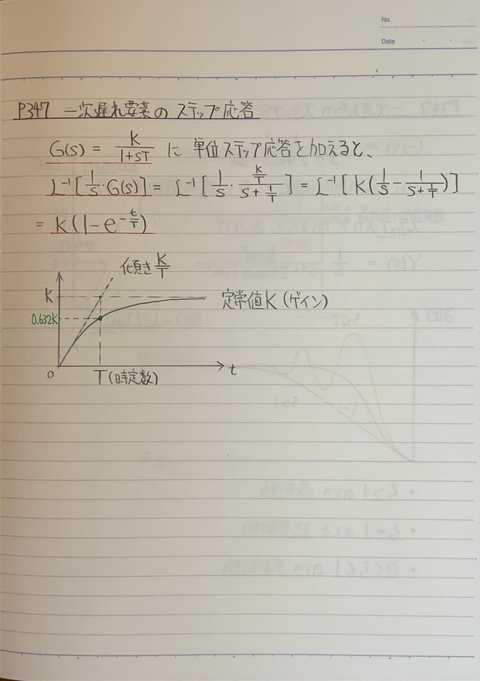 No.
Date
P347 一次遅れ要素のステップ応答
G(s) = K/(1+sT) に単位ステップ応答を加えると、
L⁻¹[1/s・G(s)] = L⁻¹[1/s・(K/T)/(s+1/T)] = L⁻¹[K(1/s − 1/(s+1/T))]
= K(1−e^(−t/T))
傾き K/T
K
定常値K(ゲイン)
0.632K
0
T(時定数)
t